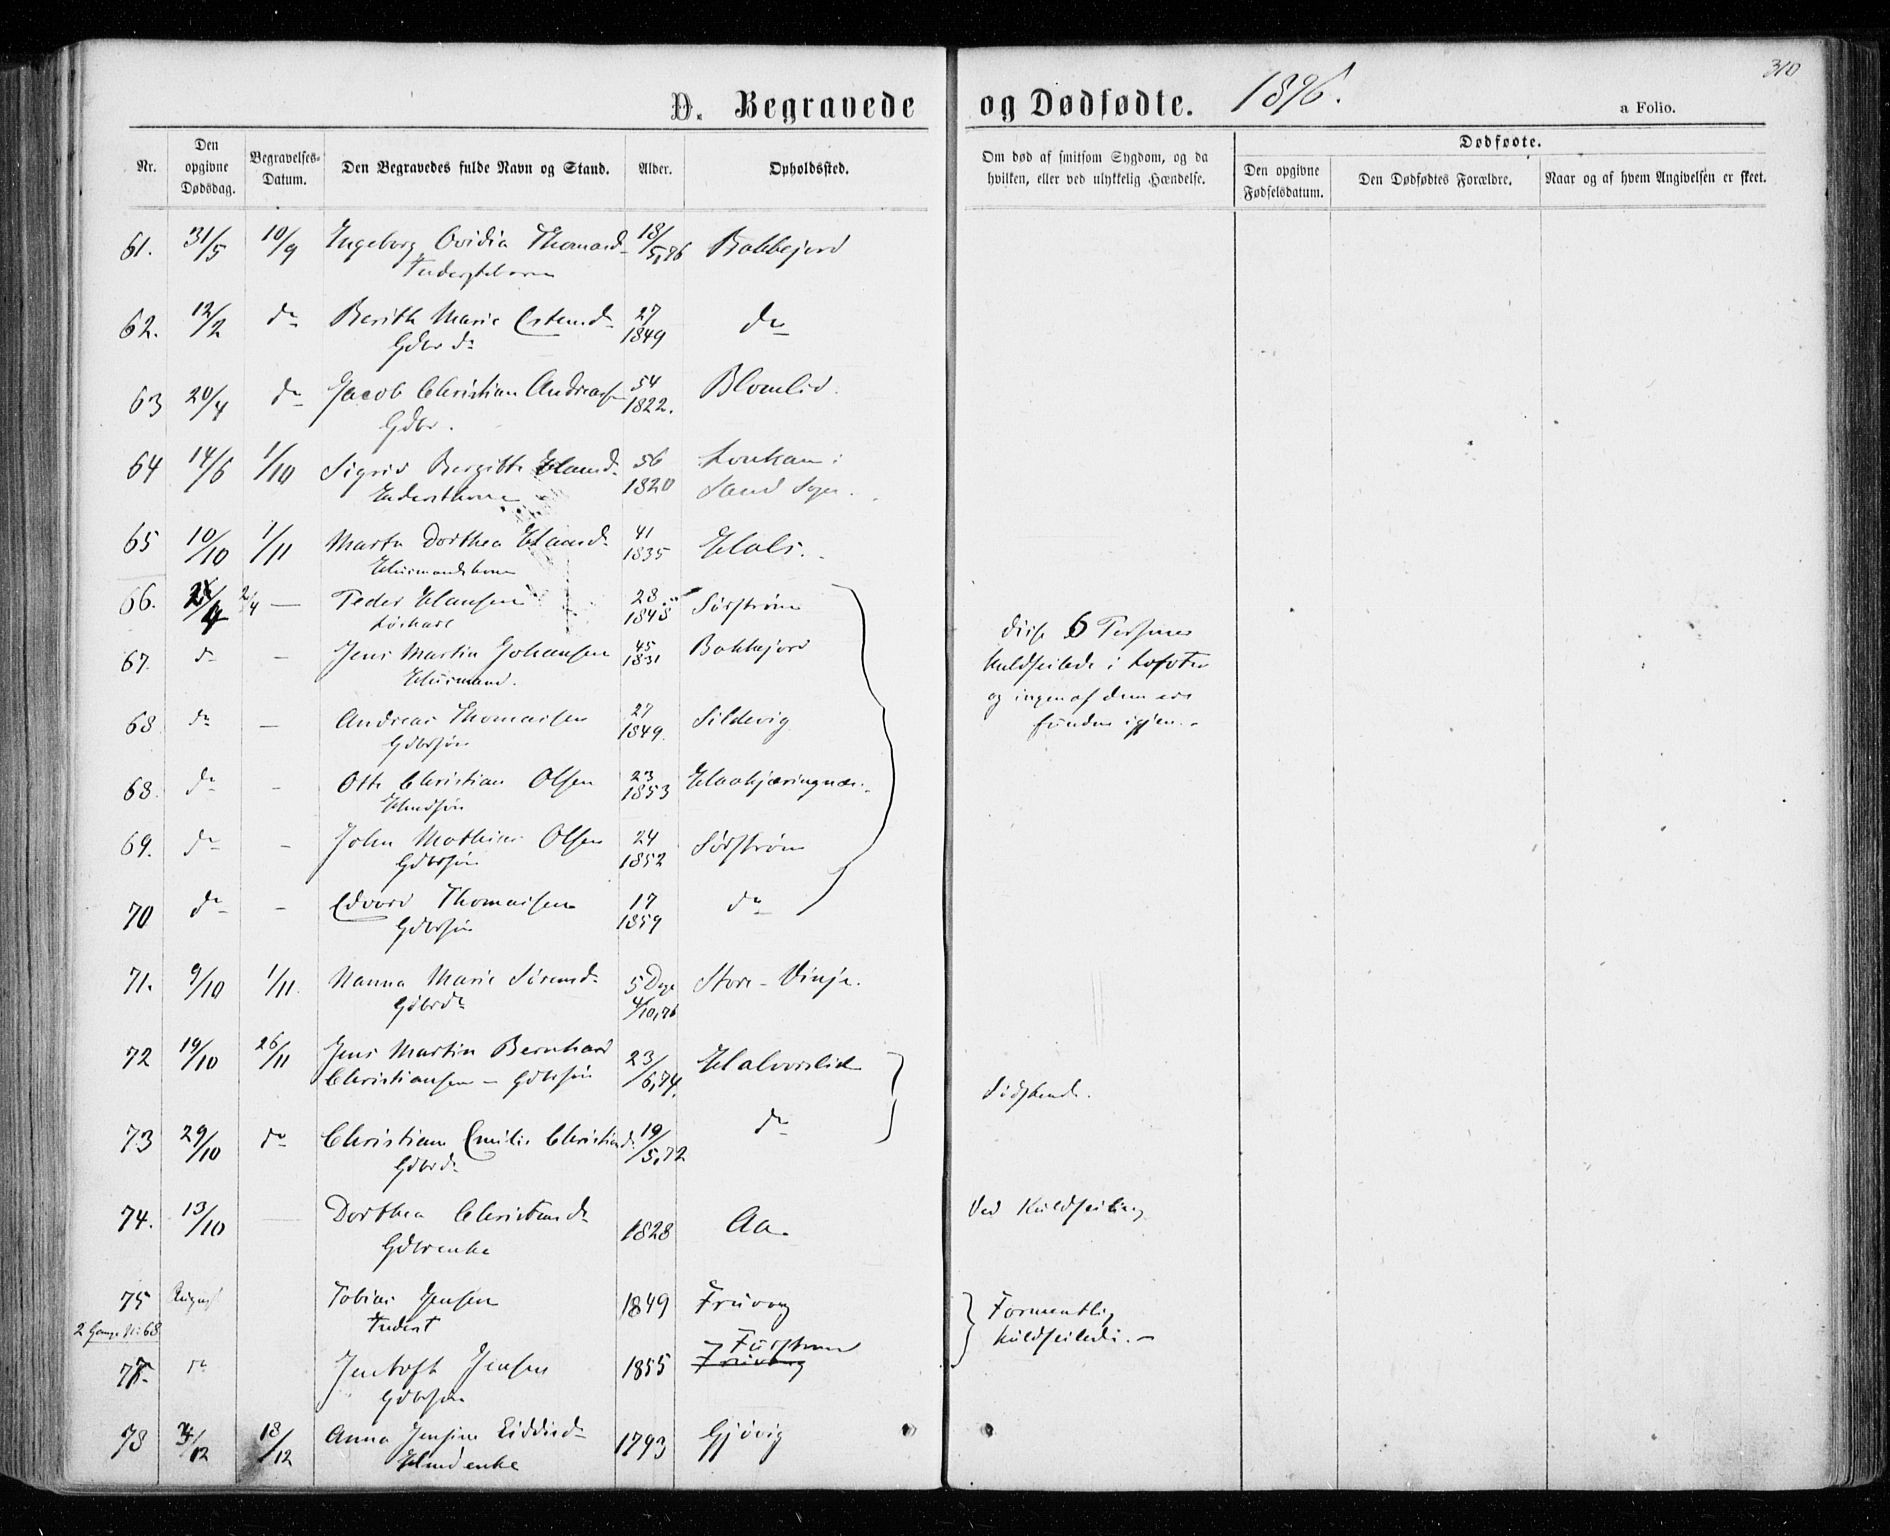 310
D. Begravede og Dødfødte. 1876.
a Folio.
Nr.
Den opgivne Dødsdag.
Begravelses-Datum.
Den Begravedes fulde Navn og Stand.
Alder.
Opholdssted.
Om død af smitsom Sygdom, og da hvilken, eller ved ulykkelig Hændelse.
Dødfødte.
Den opgivne Fødselsdatum.
Den Dødfødtes Forældre.
Naar og af hvem Angivelsen er skeet.
61. 31/5 10/9 Ingeborg Ovidia Thomasd. 18/5,76 Bakkejord
62. 12/2 do Berith Marie 27 do
Gdbr do 1849
63 20/4 do Jacob Christian Andreas 54 Blomlid.
Gdbr. 1822.
64 14/6 1/10 Sigrid Bergitte Hansd. 56
1820 Sand Sogn.
65 10/10 1/11 Marta Dorthea Hansd. 41 Hals.
Husmandskone 1835
66. 2/4 — Peder Hansen 28 Sørstrøm
1848
67. do — Jens Martin Johansen 45 Bakkejord
Husmand. 1831
68 do — Andreas Thomassen 27 Sildevig
Gdbrsøn 1849.
68. do - Otto Christian Olsen 23 Haakjæringnæs.
Husmsøn 1853
69. do - John Mathias Olsen 24 Sørstrøm
Gdbrsøn 1852
70 do - Edvard Thomassen 17 do
Gdbrsøn 1859
disse 6 Personer
kuldseilede i Lofoten
og ingen af dem ere
fundne igjen.
71. 9/10 1/11. Nanna Marie Sørensd. 5 Dage Store-Vinje.
Gdbrdr 4/10,76
72 19/10 26/11 Jens Martin Bernhard 23/6,74. Halvorslid
Christiansen – Gdbrsøn
Sødskende.
73 29/10 do Christiane Emilie Christiansd. 19/5,72 do
Gdbrdr
74. 13/10 Dorthea Christensd. 1828 Aa. Ved Kuldseiling
Gdbrenke
75 August Tobias Jensen 1849 Fruvog Formentlig
Inderst kuldseilede.
2 Gange Nr. 68
77. do Jentoft Jensen 1855
Gdbrsøn
78 12 18/12 Anna Jensine 1793 Gjøvig
Husmdenke